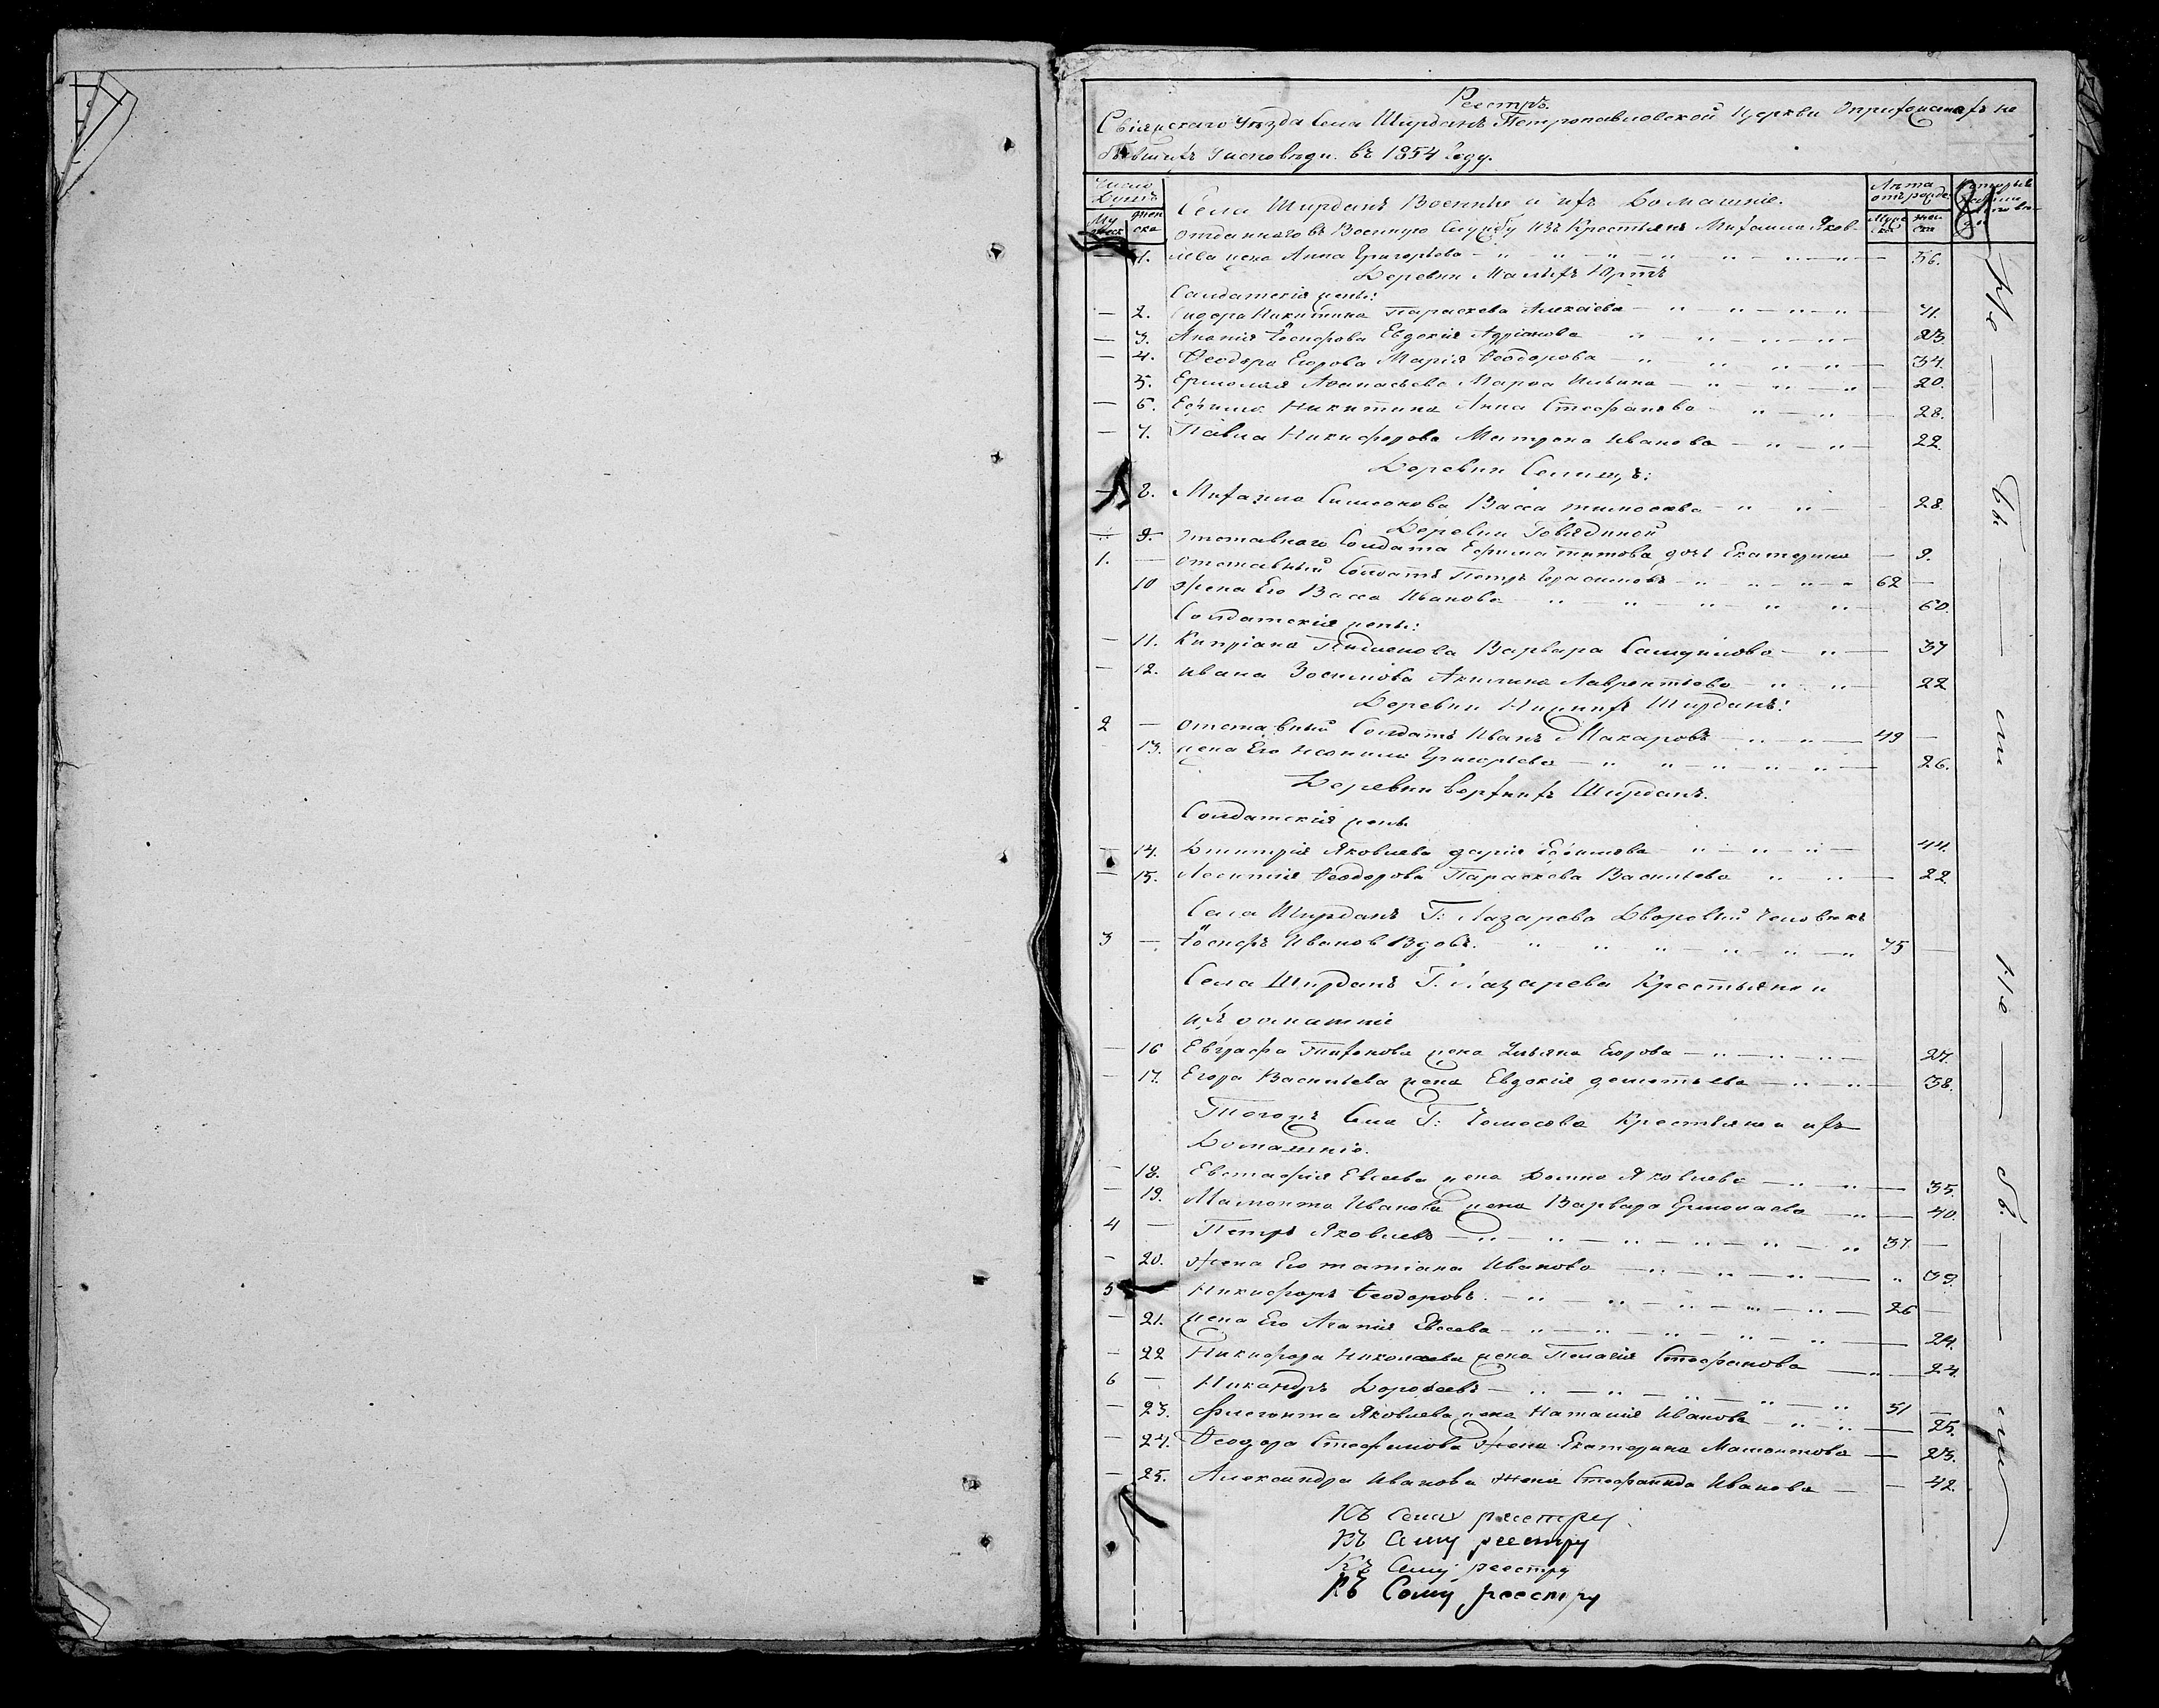 Реестръ
Свіяжскаго Уезда Села Ширданъ Петропавловской Церкви О прихожанахъ не
бывшихъ у исповеди. въ 1854 Году.
Число Душъ
Лета отъ рожде
Муж ческ
Жен ска
Села Ширданъ Военные и ихъ Домашніе.
отданнаго въ Военную Службу Изъ Крестьянъ Михаила Яков-
— 1. лева жена Анна Григорьева 56.
Деревни Малыхъ Юртъ
Салдатскія жены:
— 2. Сидора Никитина Параскева Алексіева 71.
— 3. Ананія Іосифова Евдокія Адріанова 23.
— 4. Ѳеодора Егорова Марія Ѳеодорова 34.
5. Ермолая Аѳанасьева Марѳа Ильина 20.
— 6. Ефима Никитина Анна Стефанова 28.
— 7. Павла Никифорова Матрона Иванова 22.
Деревни
— 8. Михаила Симеонова Васса 28.
Деревни
— 9. отставнаго Солдата Ефима Титова дочь Екатерина — 9.
1. — отставный Солдатъ Петръ Герасимовъ 62 —
10 Жена Его Васса Иванова 60.
Солдатскія жены:
— 11. Кипріана Варвара Самуилова 37
— 12. Ивана Зосимова Акилина Лаврентьева 22
Деревни Нижнихъ Ширданъ:
2 — отставный Солдатъ Иванъ Макаровъ 49 —
13. жена Его Неонила Григорьева 26.
Деревни Верхнихъ Ширданъ.
Солдатскія жены
— 14. Димитрія Яковлева Дарія Ефимова 44.
— 15. Леонтія Ѳеодорова Параскева Васильева 22
Села Ширданъ Г: Лазарева Дворовый Человекъ
3 — Іосифъ Иванов Вдовъ. 75 —
Села Ширданъ Г. Лазарева Крестьяне и
ихъ домашніе
— 16 Евграфа Тихонова жена Ульяна Егорова 27.
— 17. Егора Васильева жена Евдокія Дементьева 38.
Тогожъ Села Г: Крестьяне и ихъ
Домашніе.
— 18. Евстафія Евсеева жена Домна Яковлева 35.
— 19. Мамонта Иванова жена Варвара Ермолаева 40.
4 — Петръ Яковлевъ 37 —
— 20. Жена Его Татіана Иванова 39.
5 — Никифоръ Ѳеодоровъ 26 —
— 21. жена Его Агапія Евсеева 24.
— 22 Никифора Николаева жена Пелагія Стефанова 24.
6 — Никандръ Дороѳеевъ 51 —
— 23. Флегонта Яковлева жена Наталія Иванова 25.
— 24. Ѳеодора Жена Екатерина Мамонтова — 23.
— 25. Александра Иванова Жена Стефанида Иванова — 42.
Не — бы — ли
Не — бы — ли
Къ Сему реестру
Къ Сему реестру
Къ Сему реестру
Къ Сему реестру